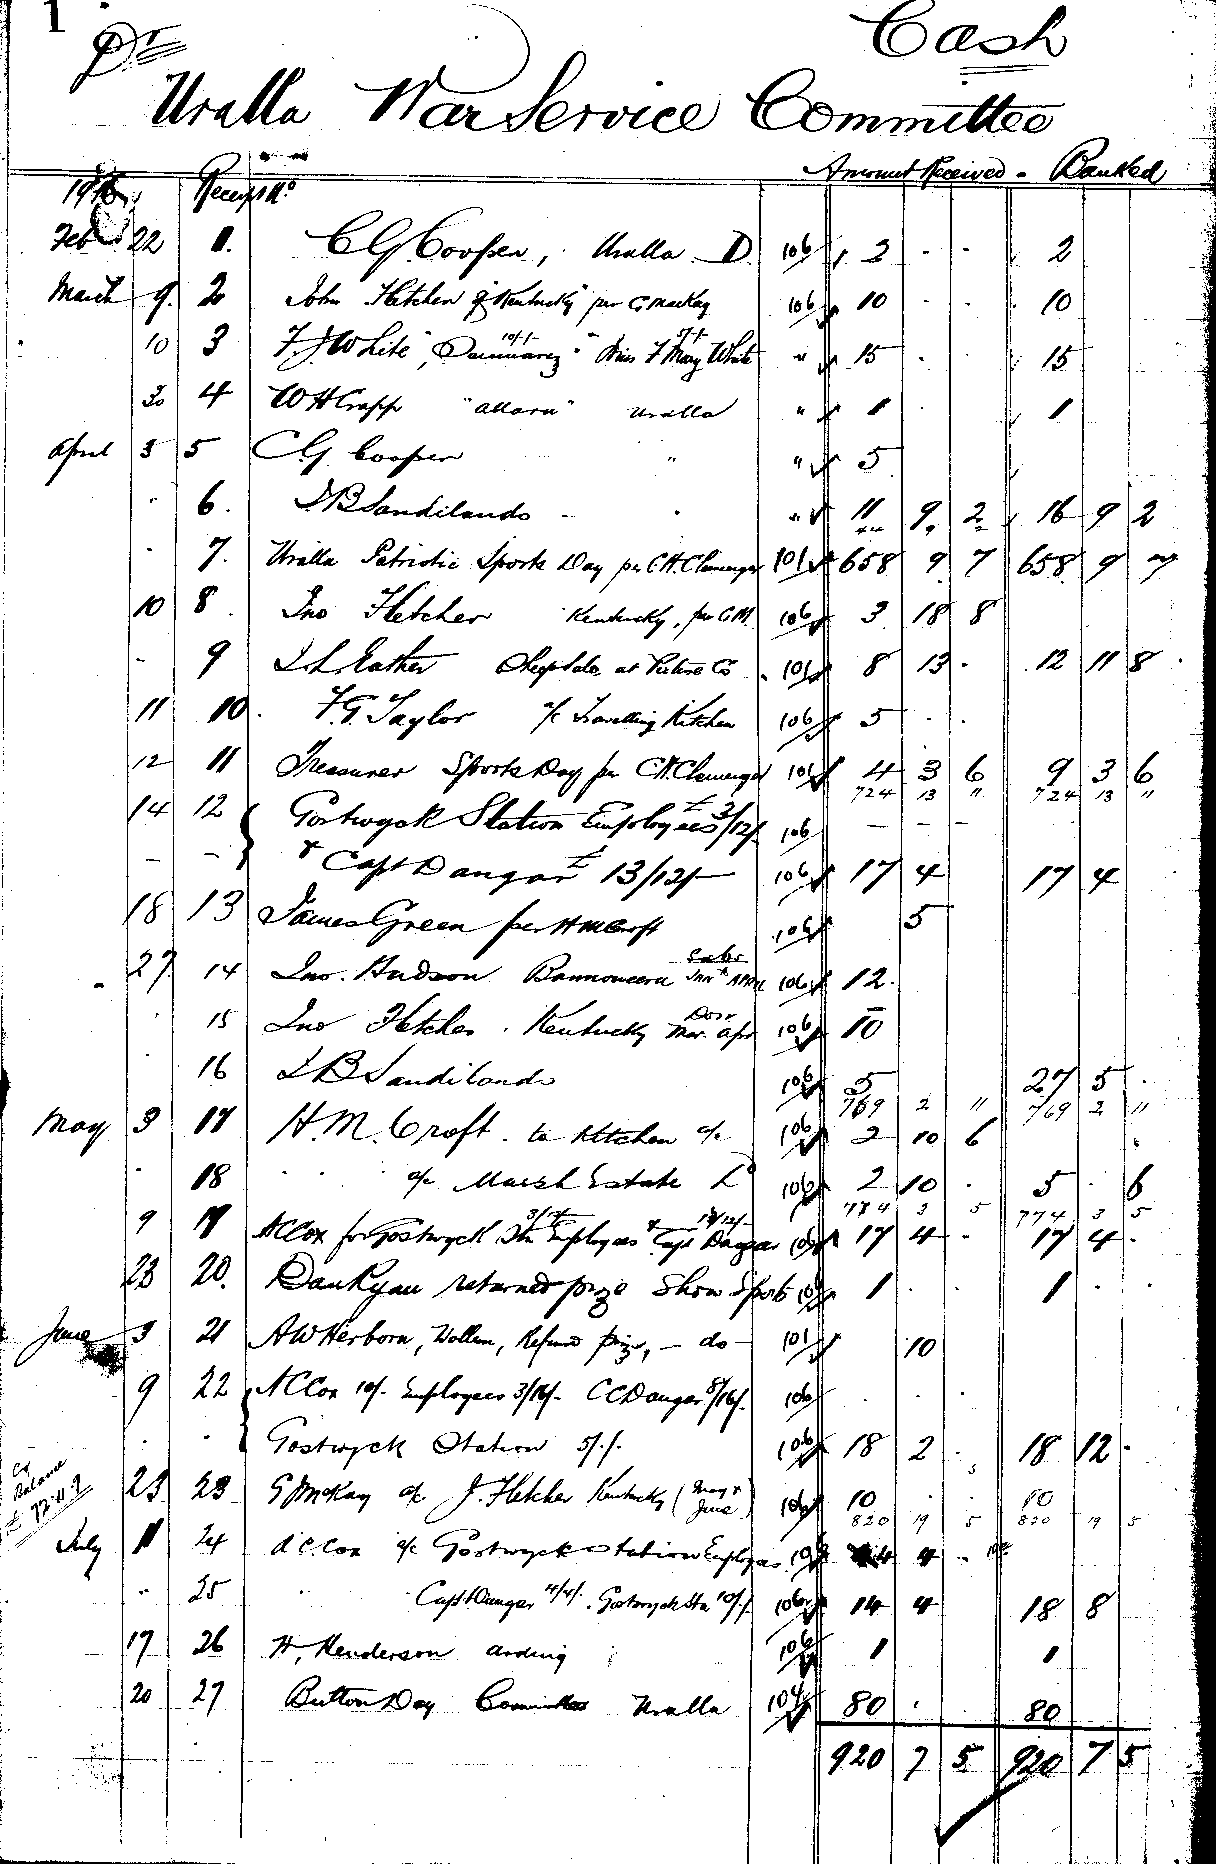 1
Dr Cash
Uralla War Service Committee
Amount Received - Banked
1916 Receipt No
Feb 22 1. C G Cooper, Uralla D 106 2 . . 2
March 9. 2 John Fletcher of Kentucky per G Mackay 106 10 . . 10
10 3 F J White 10/- " Miss F Mary White 5/- " 15 . 15
30 4 W H Crapp "Allara" Uralla " 1 . 1
April 3 5 C. G. Cooper " " 5
" 6. J B Sandilands - " " 11 9 2 16 9 2
" 7. Uralla Patriotic Sports Day per C H. Clemenger 101 658 9 7 658 9 7
10 8. Jno Fletcher Kentucky, per G M. 106 3 18 8
- 9 Sheep Sale at 101 8 13 . 12 11 8
11 10. F. G. Taylor a/c Travelling Kitchen 106 5 . .
12 11 Treasurer Sports Day per C H. Clemenger 101 4 3 6 9 3 6
724 13 " 724 13 "
14 12 { Gostwyck Station Employees £3/12/- 106 - - -
- - & Capt Dangar £13/12/- 106 17 4 17 4
18 13 James Green per H M Croft 106 5
27 14 Jno. Hudson 106 12.
15 Jno Fletcher . Kentucky Mar. Apr 106 10
16 J B Sandilands 106 5 27 5 .
769 2 11 769 2 11
May 3 17 H. M. Croft . to Kitchen a/c 106 2 10 6
" 18 " " a/c Marsh Estate Ld 106 2 10 . 5 . 6
774 3 5 774 3 5
9 19 A C Cox for Gostwyck Stn Employees 3/12/- & Capt Dangar 13/12/- 106 17 4 . 17 4 .
23 20. Dan Ryan returned prize Show Sports 101 1 . . 1 . .
June 3 21 A W Herborn, Wollun, Refund prize, - do - 101 10
9 22 { A C Cox 10/- Employees 3/16/- C C Dangar 8/16/- 106 . .
" " Gostwyck Station 5/-/- 106 18 2 . 18 12 .
23 23 G McKay a/c J. Fletcher Kentucky (May & June) 106 10 . . 10
820 19 5 820 19 5
Balance
July 11 24 A C Cox a/c Gostwyck Station Employees 106 4 4 -
" 25 " Capt Dangar 4/4/- . Gostwyck Stn 10/-/- 106 14 4 18 8
17 26 H, Henderson Arding 106 1 1
20 27 Button Day Committee Uralla 104 80 . 80
920 7 5 920 7 5